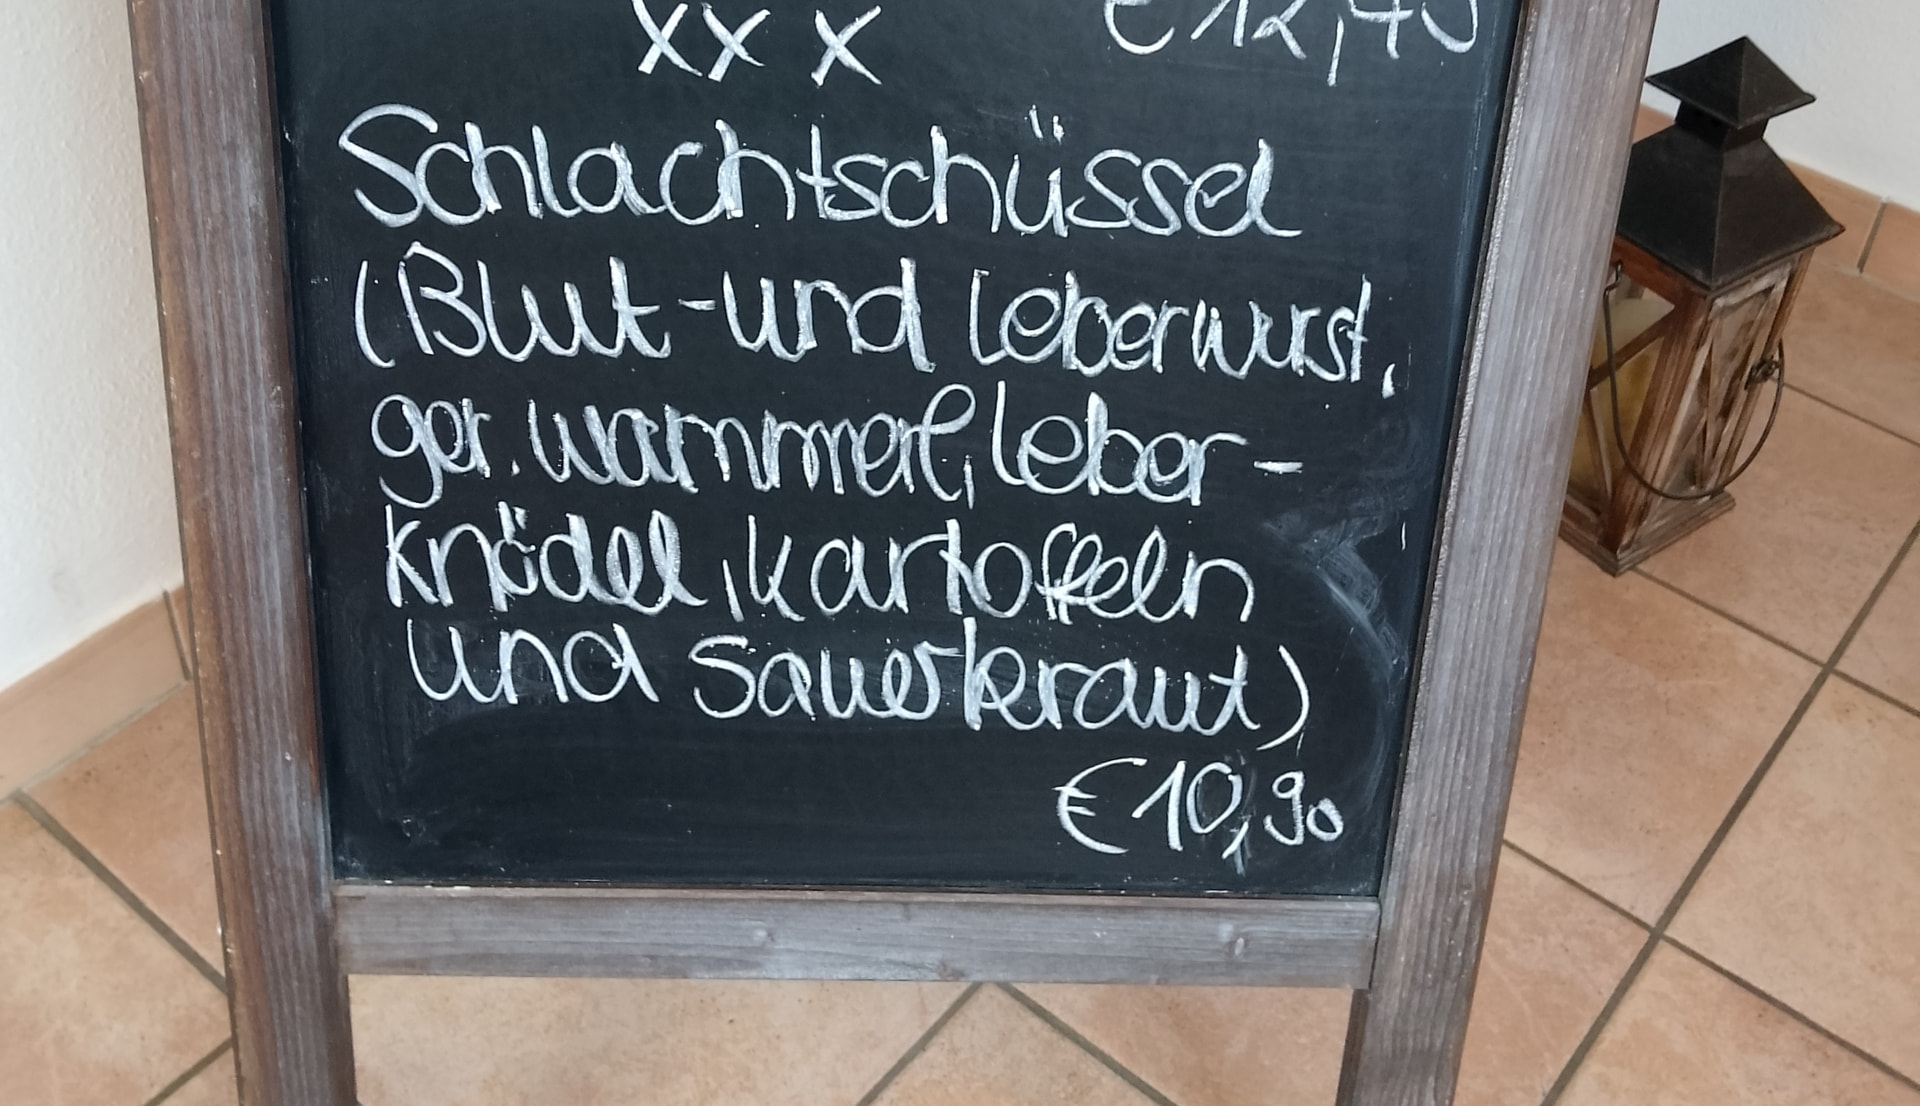 xxx €12,
Schlachtschüssel
(Blut-und Leberwurst,
ger. Wammerl, Leber-
knödel, Kartoffeln
und Sauerkraut)
€10,90